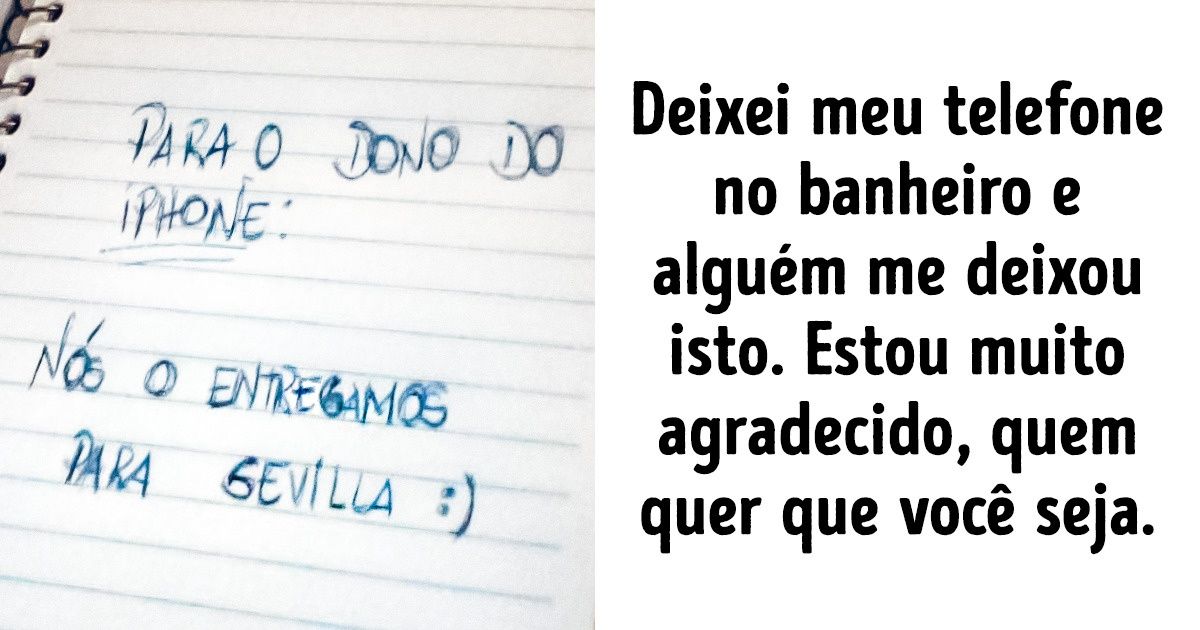 PARA O DONO DO
iPHONE:
NÓS O ENTREGAMOS
PARA SEVILLA :)
Deixei meu telefone
no banheiro e
alguém me deixou
isto. Estou muito
agradecido, quem
quer que você seja.